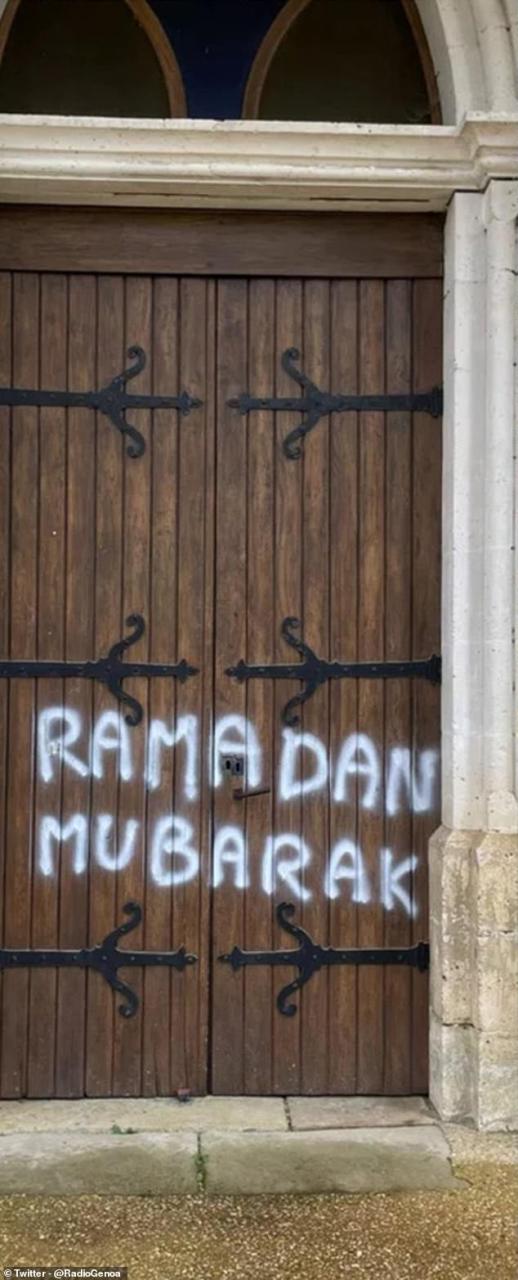 RAMADAN
MUBARAK
© Twitter - @RadioGenoa